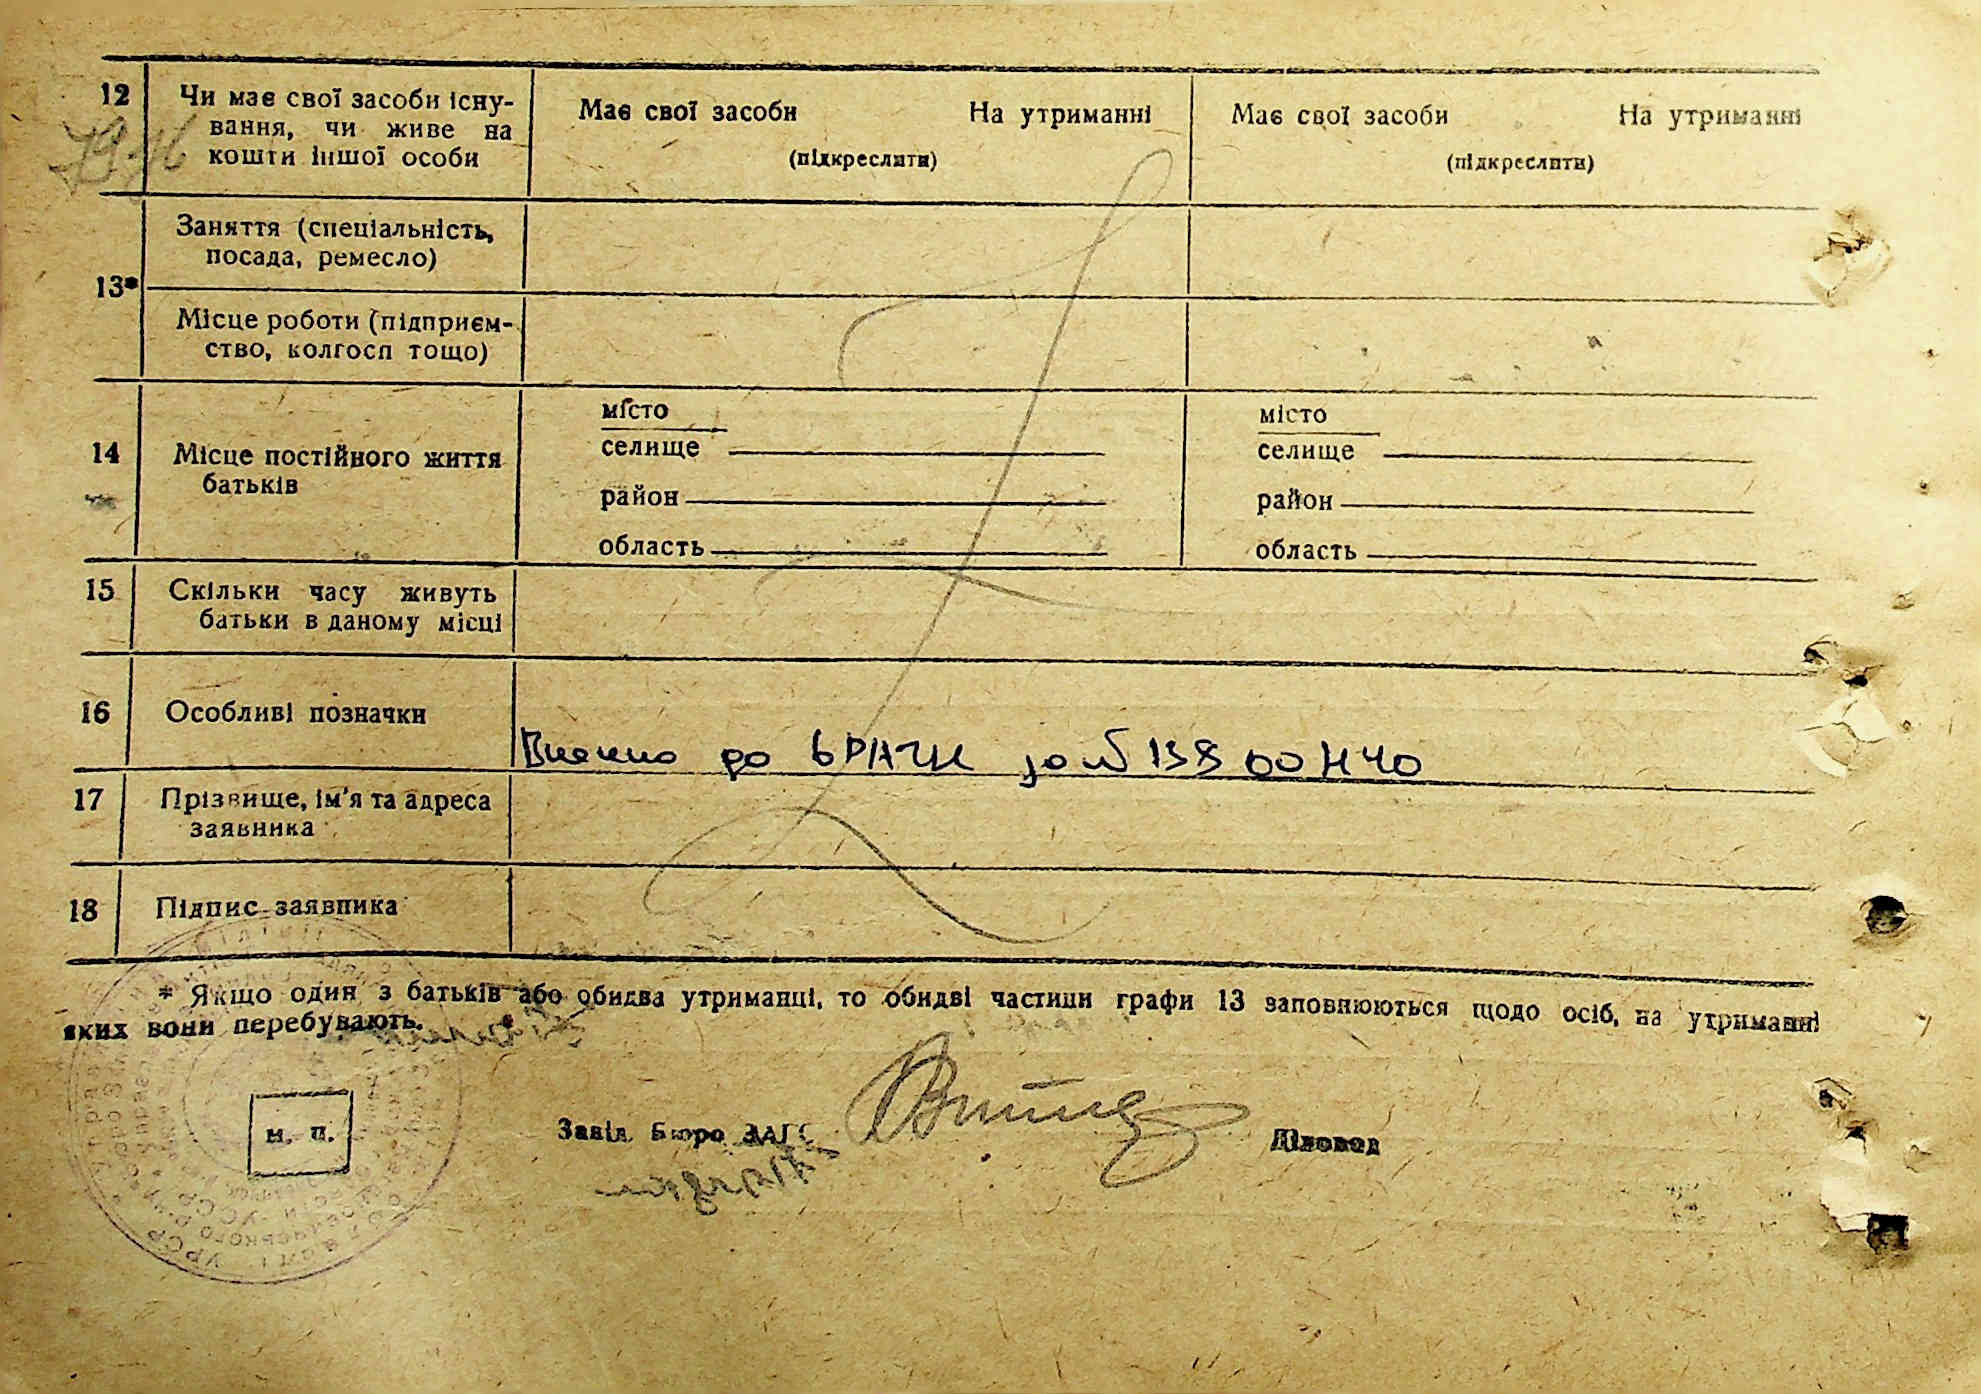 12 Чи має свої засоби існу-
вання, чи живе на
кошти іншої особи
Має свої засоби На утриманні
(підкреслити)
Має свої засоби На утриманні
(підкреслити)
13* Заняття (спеціальність,
посада, ремесло)
Місце роботи (підприєм-
ство, колгосп тощо)
14 Місце постійного життя
батьків
місто
селище
район
область
місто
селище
район
область
15 Скільки часу живуть
батьки в даному місці
16 Особливі позначки
до
17 Прізвище, ім'я та адреса
заявника
18 Підпис заявника
* Якщо один з батьків або обидва утриманці, то обидві частини графи 13 заповнюються щодо осіб, на утриманні
яких вони перебувають.
м. п.
Завід. Бюро ЗАГС
Діловод